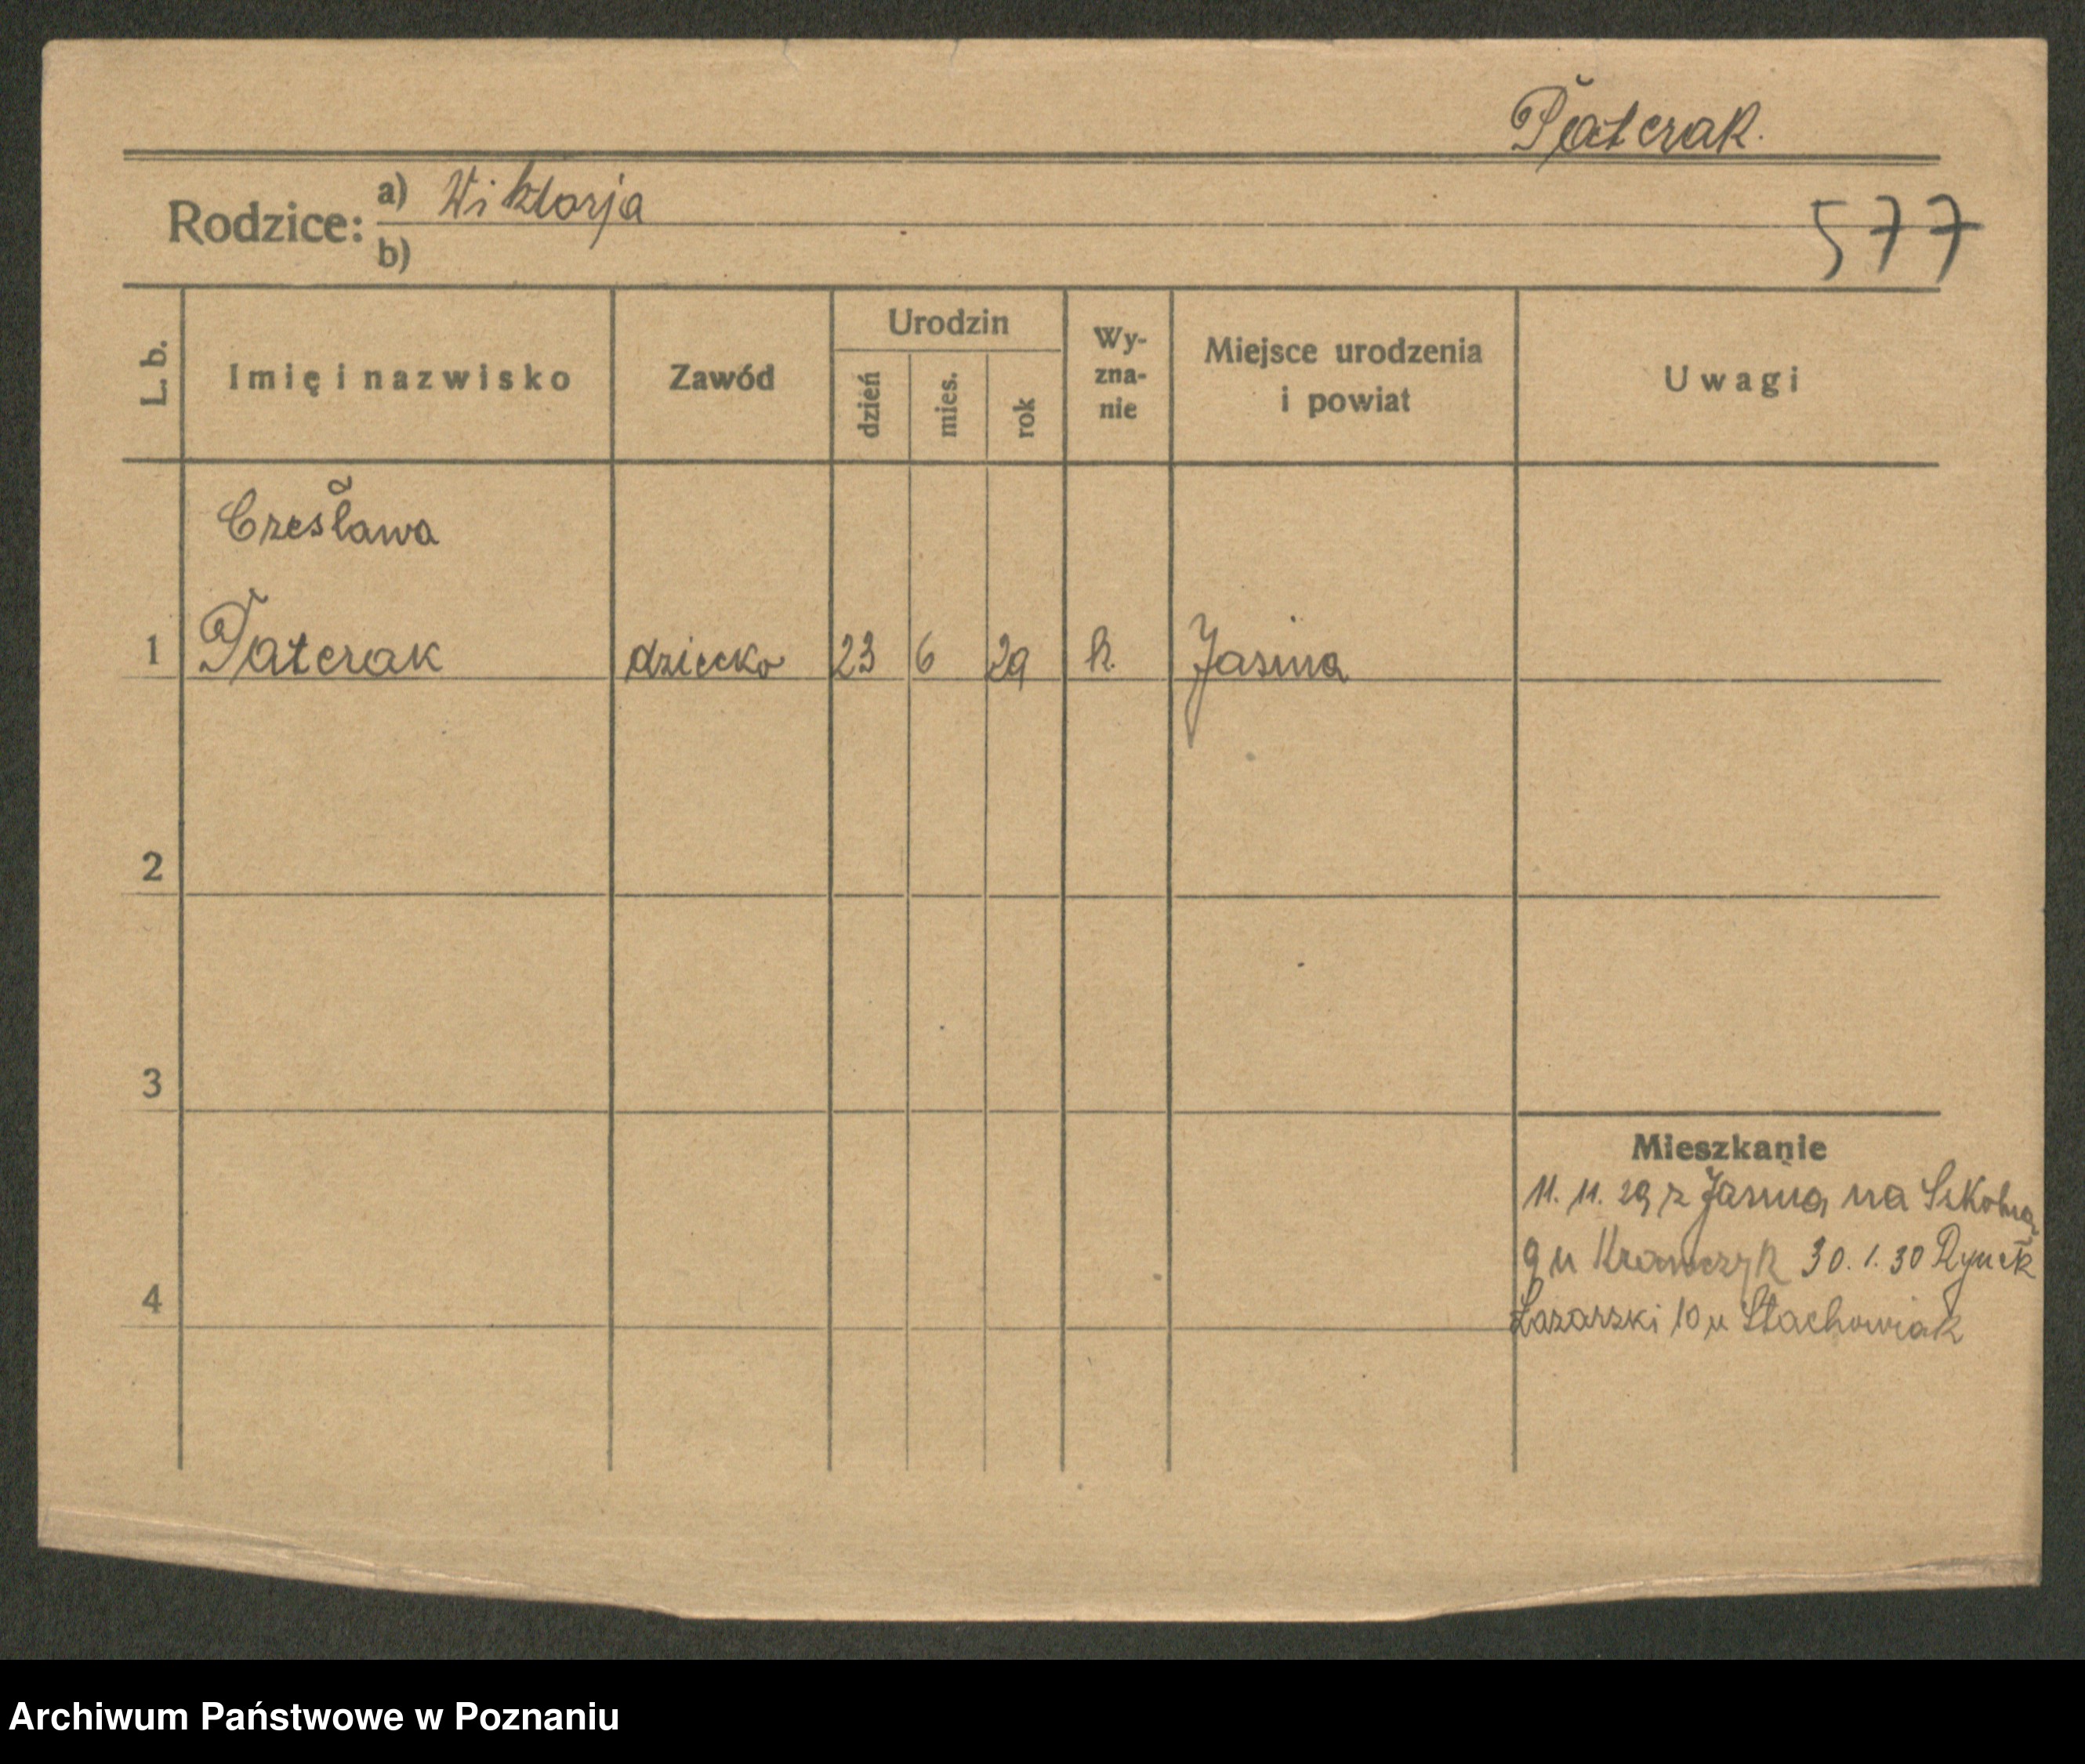 Paterak.
Rodzice: a) Wiktorja
b)
577
L. b. Imię i nazwisko Zawód Urodzin dzień mies. rok Wy-zna-nie Miejsce urodzenia i powiat Uwagi
Czesława
1 Paterak dziecko 23 6 29 k. Jasina
2
3
Mieszkanie
11. 11. 29 z Jasina na Szkolną
9 u Krawczyk 30. 1. 30 Rynek
4 Łazarski 10 u Stachowiak
Archiwum Państwowe w Poznaniu